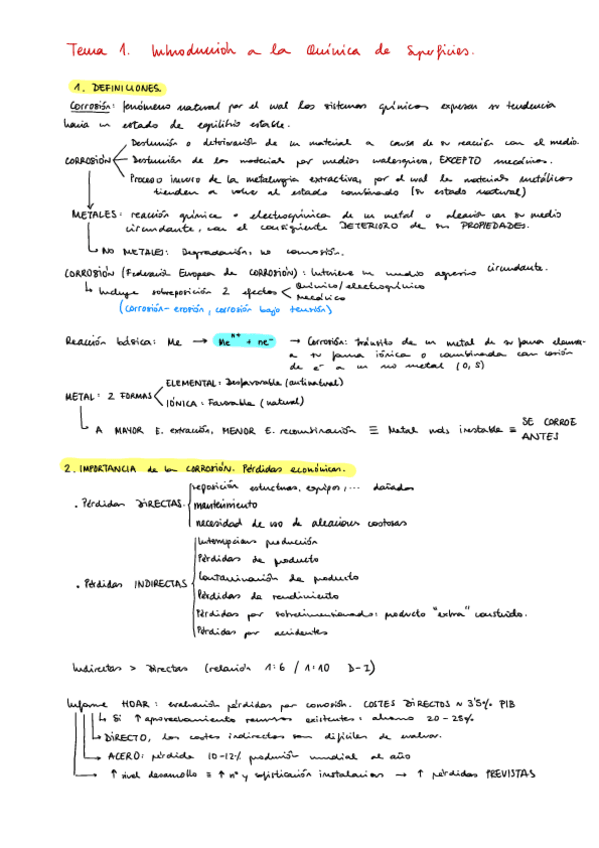 Tema 1. Introducción a la Química de Superficies.
1. DEFINICIONES.
Corrosión: fenómeno natural por el cual los sistemas químicos expresan su tendencia
hacia un estado de equilibrio estable.
Destrucción o deterioración de un material a causa de su reacción con el medio.
CORROSIÓN Destrucción de los material por medios cualesquiera, EXCEPTO mecánicos.
Proceso inverso de la metalurgia extractiva, por el cual los materiales metálicos
tienden a volver al estado combinado (su estado natural)
METALES: reacción química o electroquímica de un metal o aleación con su medio
circundante, con el consiguiente DETERIORO de sus PROPIEDADES.
↳ NO METALES: Degradación; no corrosión.
CORROSIÓN (Federación Europea de CORROSIÓN): Interviene un medio agresivo circundante.
↳ Incluye sobreposición 2 efectos < Químico/electroquímico
Mecánico
(corrosión-erosión, corrosión bajo tensión)
Reacción básica: Me → Meⁿ⁺ + ne⁻ → Corrosión: tránsito de un metal de su forma elemen-
a su forma iónica o combinada con cesión
de e⁻ a un no metal (O, S)
METAL: 2 FORMAS < ELEMENTAL: Desfavorable (antinatural)
IÓNICA: Favorable (natural)
↳ A MAYOR E. extracción, MENOR E. recombinación ≡ Metal más inestable ≡ SE CORROE
ANTES
2. IMPORTANCIA de la CORROSIÓN. Pérdidas económicas.
reposición estructuras, equipos, ... dañados
. Pérdidas DIRECTAS. mantenimiento
necesidad de uso de aleaciones costosas
Interrupciones producción
Pérdidas de producto
Contaminación de producto
. Pérdidas INDIRECTAS
Pérdidas de rendimiento
Pérdidas por sobredimensionados: producto "extra" construido.
Pérdidas por accidentes
Indirectas > Directas (relación 1:6 / 1:10 D-I)
Informe HOAR: evaluación pérdidas por corrosión. COSTES DIRECTOS ≈ 3'5% PIB
↳ Si ↑ aprovechamiento recursos existentes: ahorro 20-25%
↳ DIRECTO, los costes indirectos son difíciles de evaluar.
→ ACERO: pérdida 10-12% producción mundial al año
→ ↑ nivel desarrollo ≡ ↑ nº y sofisticación instalaciones → ↑ pérdidas PREVISTAS